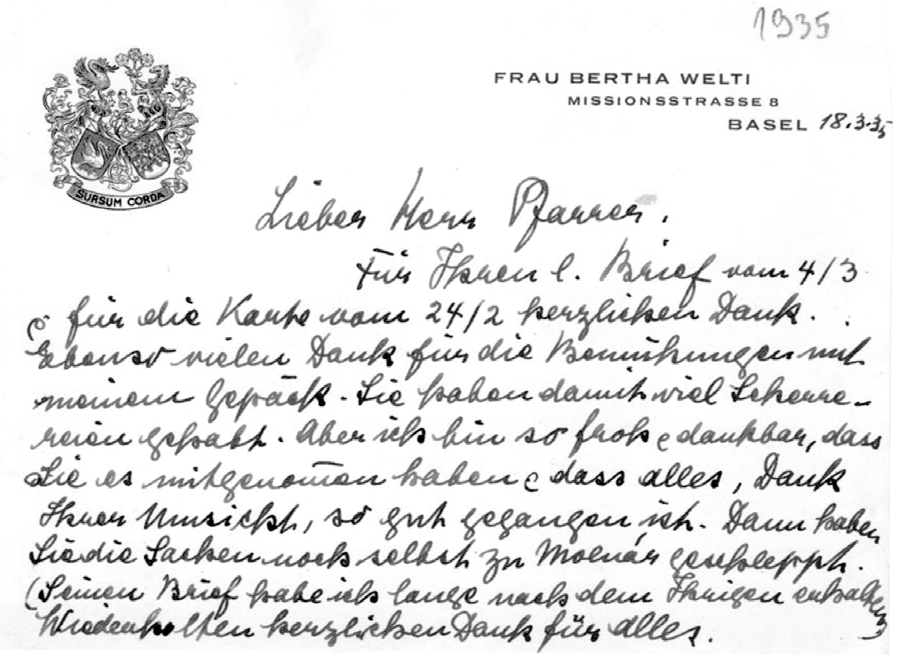 1935
FRAU BERTHA WELTI
MISSIONSSTRASSE 8
BASEL 18.3.35
SURSUM CORDA
Lieber Herr Pfarrer.
Für Ihren l. Brief vom 4/3
& für die Karte vom 24/2 herzlichen Dank.
Ebenso vielen Dank für die Bemühungen mit
meinem Gepäck. Sie haben damit viel Scherre-
reien gehabt. Aber ich bin so froh & dankbar, dass
Sie es mitgenom̄en haben & dass alles, Dank
Ihrer Umsicht, so gut gegangen ist. Dann haben
Sie die Sachen noch selbst zu Molnár geschleppt.
(Seinen Brief habe ich lange nach dem Ihrigen erhalten)
Wiederholten herzlichen Dank für alles.